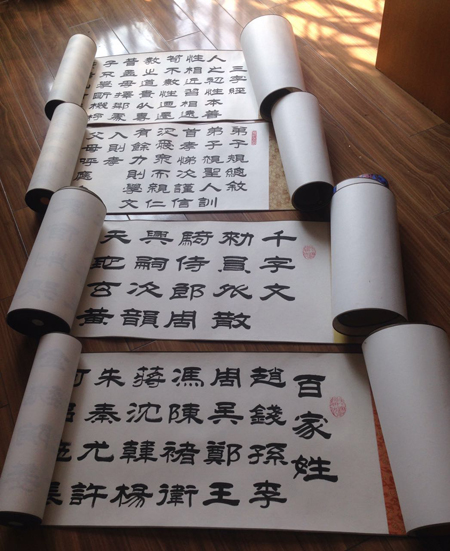 三字經
人之初性本善
性相近習相遠
苟不教性迺遷
教之道貴以專
昔孟母擇鄰處
子不學斷機杼
弟子規總敘
弟子規聖人訓
首孝悌次謹信
汎愛眾而親仁
有餘力則學文
入則孝
父母呼應
千字文
勑員外散
騎侍郎周
興嗣次韻
天地玄黃
百家姓
趙錢孫李
周吳鄭王
馮陳褚衛
蔣沈韓楊
朱秦尤許
何呂施張